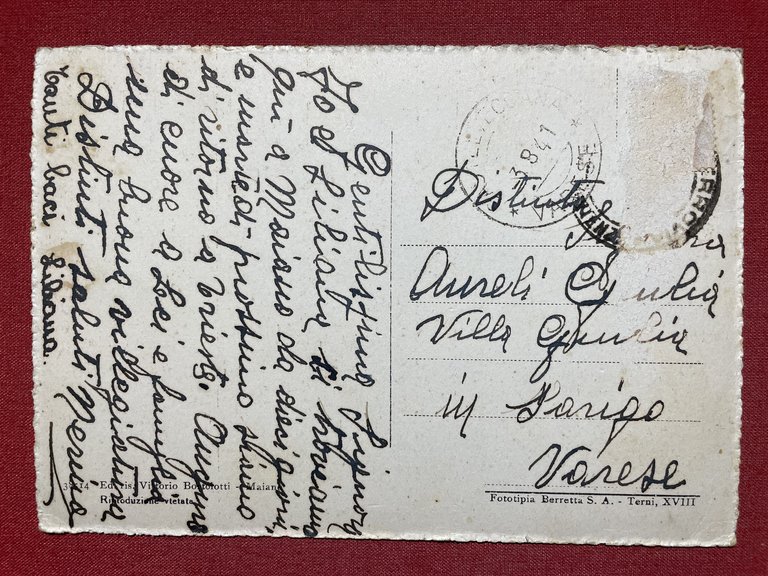 Gentilissima Signora
Io e Liliana ci troviamo
qui a Maiano da dieci giorni,
e martedì prossimo siamo
di ritorno a Trieste. Auguro
di cuore a Lei e famiglia
una buona villegiatura
Distinti saluti Nerina
Tanti baci Liliana.
Distinta
Aureli Giulia
Villa Giulia
in
Varese
3514 Ed. ris. Vittorio Bortolotti - Maiano
Riproduzione vietata
Fototipia Berretta S. A. - Terni, XVIII
8 41